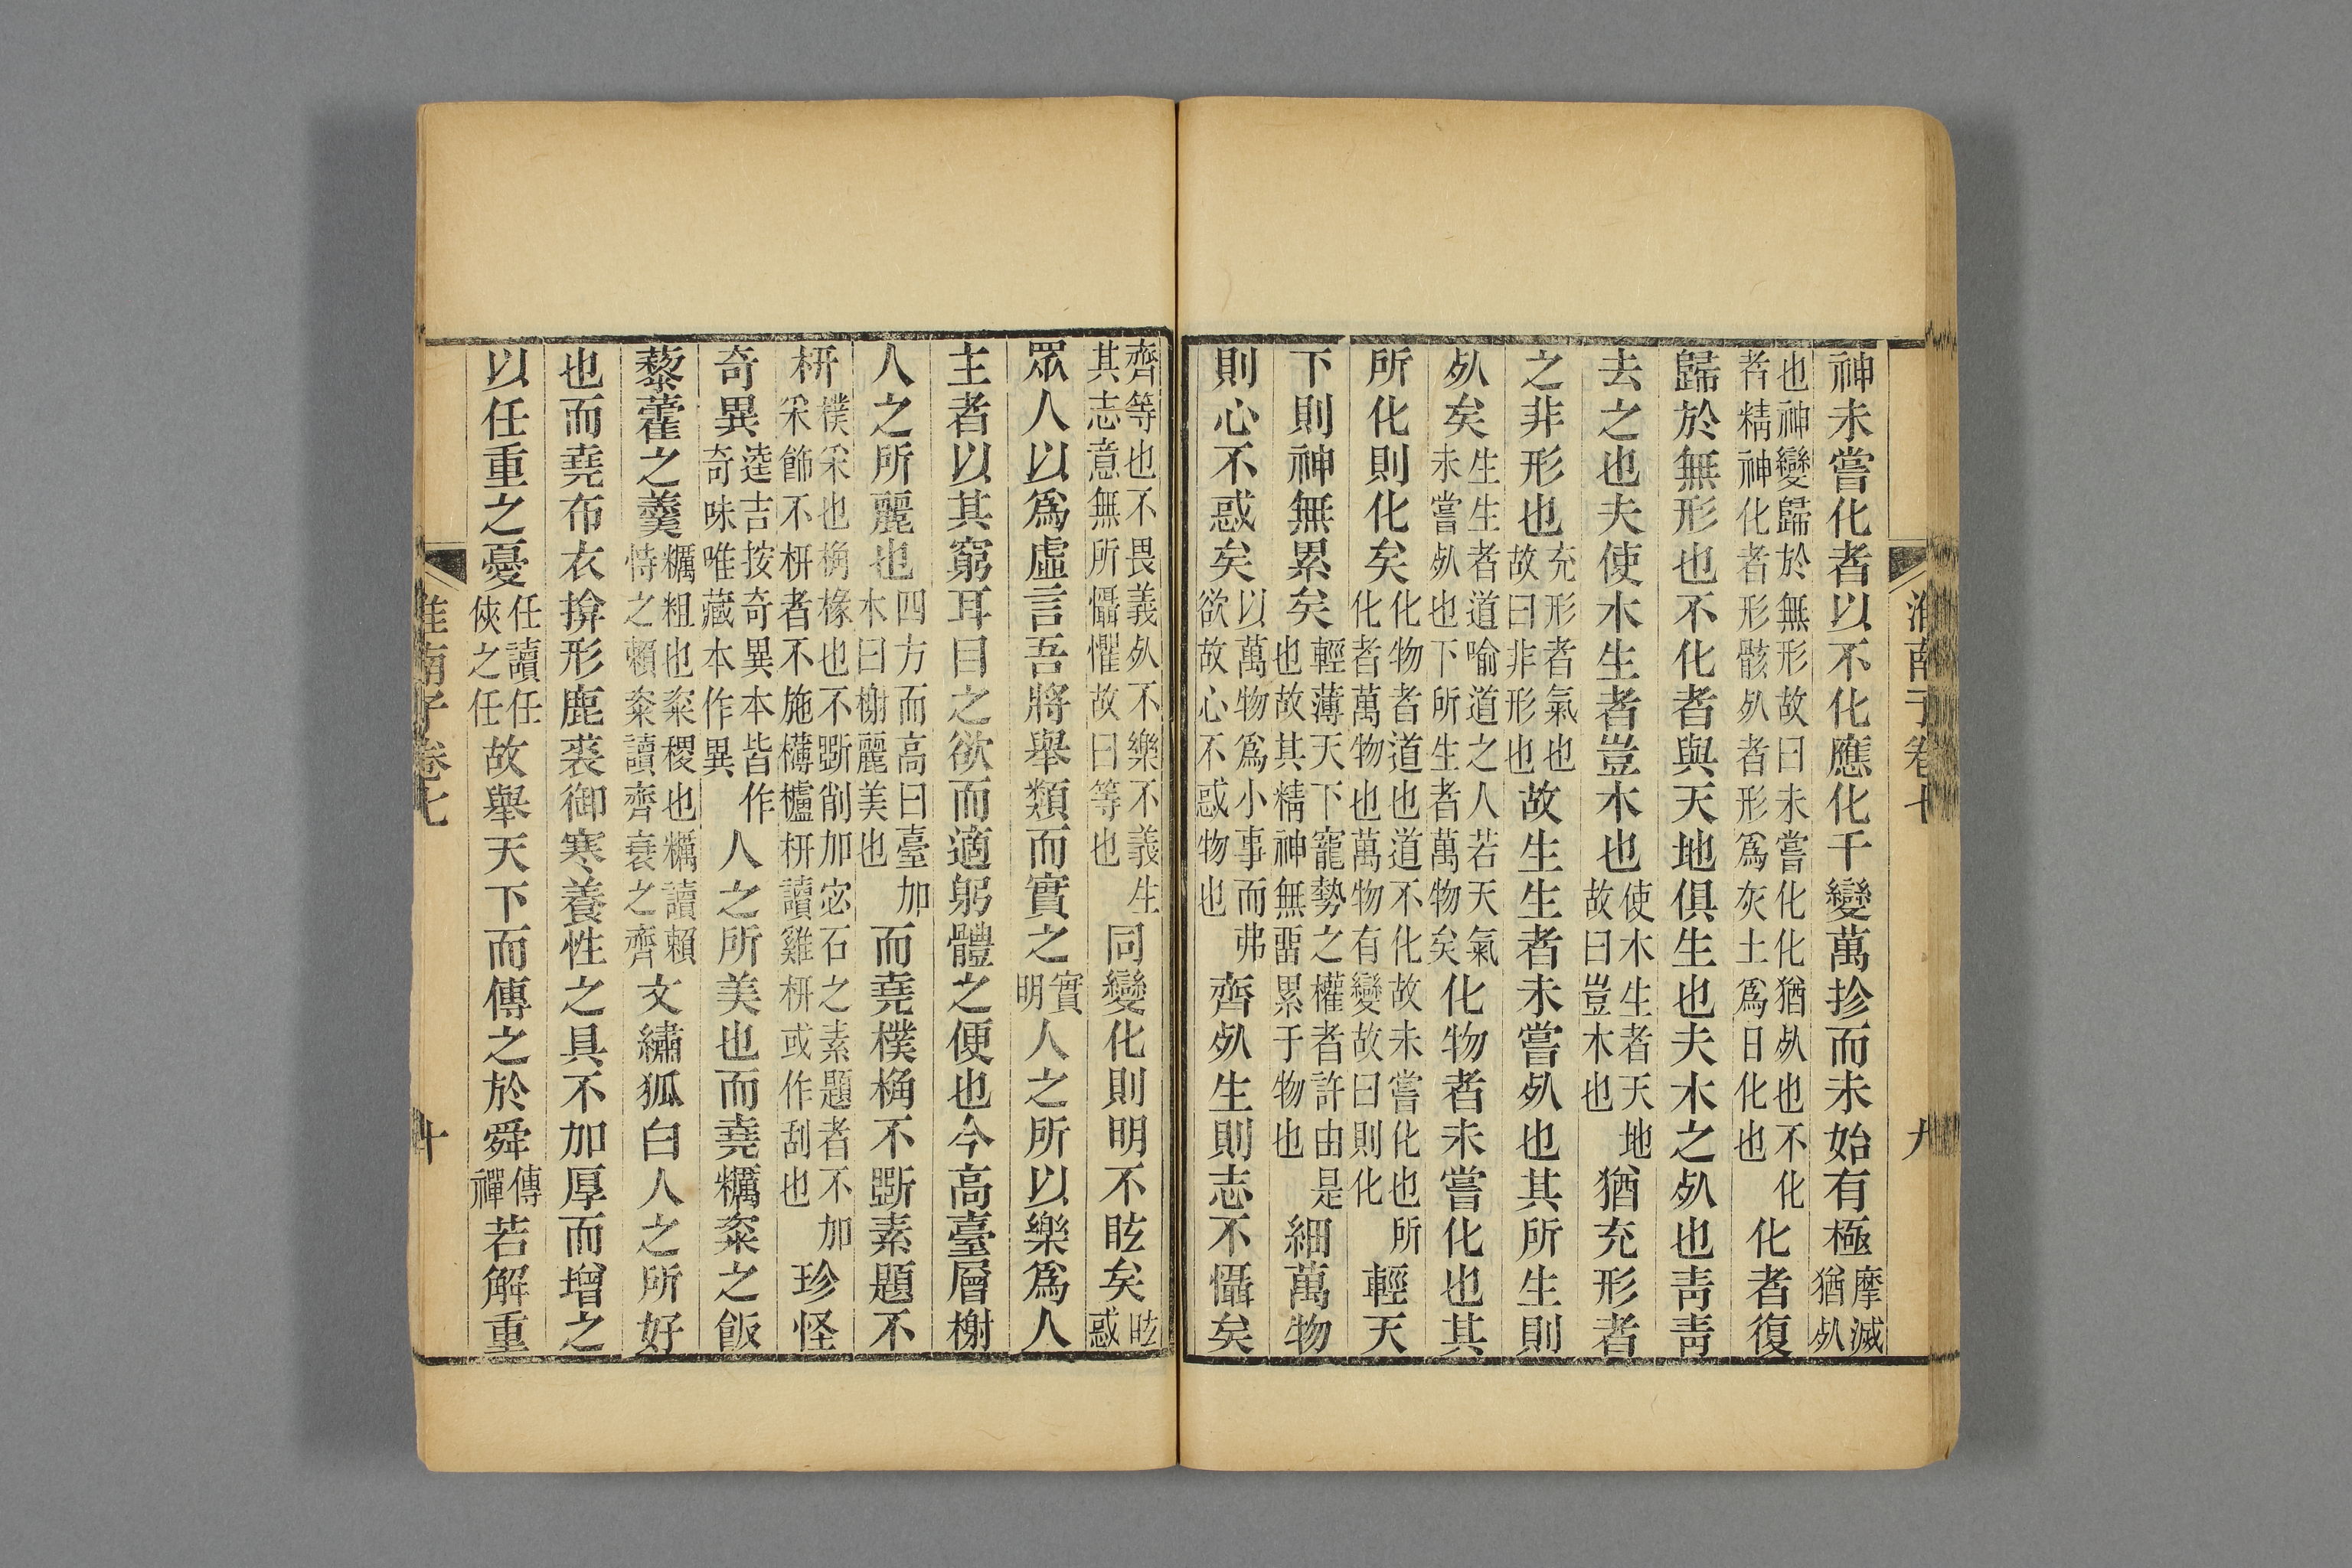 神未嘗化者以不化應化千變萬抮而未始有極摩滅猶㱙
也神變歸於無形故曰未嘗化化猶㱙也不化者精神化者形骸㱙者形爲灰土爲日化也化者復
歸於無形也不化者與天地俱生也夫木之㱙也靑靑
去之也夫使木生者豈木也使木生者天地故曰豈木也猶充形者
之非形也充形者氣也故曰非形也故生生者未嘗㱙也其所生則
㱙矣生生者道喻道之人若天氣未嘗㱙也下所生者萬物矣化物者未嘗化也其
所化則化矣化物者道也道不化故未嘗化也所化者萬物也萬物有變故曰則化輕天
下則神無累矣輕薄天下寵勢之權者許由是也故其精神無畱累于物也細萬物
則心不惑矣以萬物爲小事而弗欲故心不惑物也齊㱙生則志不懾矣
齊等也不畏義㱙不樂不義生其志意無所懾懼故曰等也同變化則明不眩矣眩惑
眾人以爲虛言吾將舉類而實之實明人之所以樂爲人
主者以其窮耳目之欲而適躬體之便也今高臺層榭
人之所麗也四方而高曰臺加木曰榭麗美也而堯樸桷不斲素題不
枅樸采也桷椽也不斲削加宓石之素題者不加采飾不枅者不施欂櫨枅讀雞枅或作刮也珍怪
奇異逵吉按奇異本皆作奇味唯藏本作異人之所美也而堯糲粢之飯
藜藿之羹糲粗也粢稷也糲讀賴恃之賴粢讀齊衰之齊文繡狐白人之所好
也而堯布衣揜形鹿裘御寒養性之具不加厚而增之
以任重之憂任讀任俠之任故舉天下而傳之於舜傳禪若解重
淮南子卷七
九
淮南子卷七
十